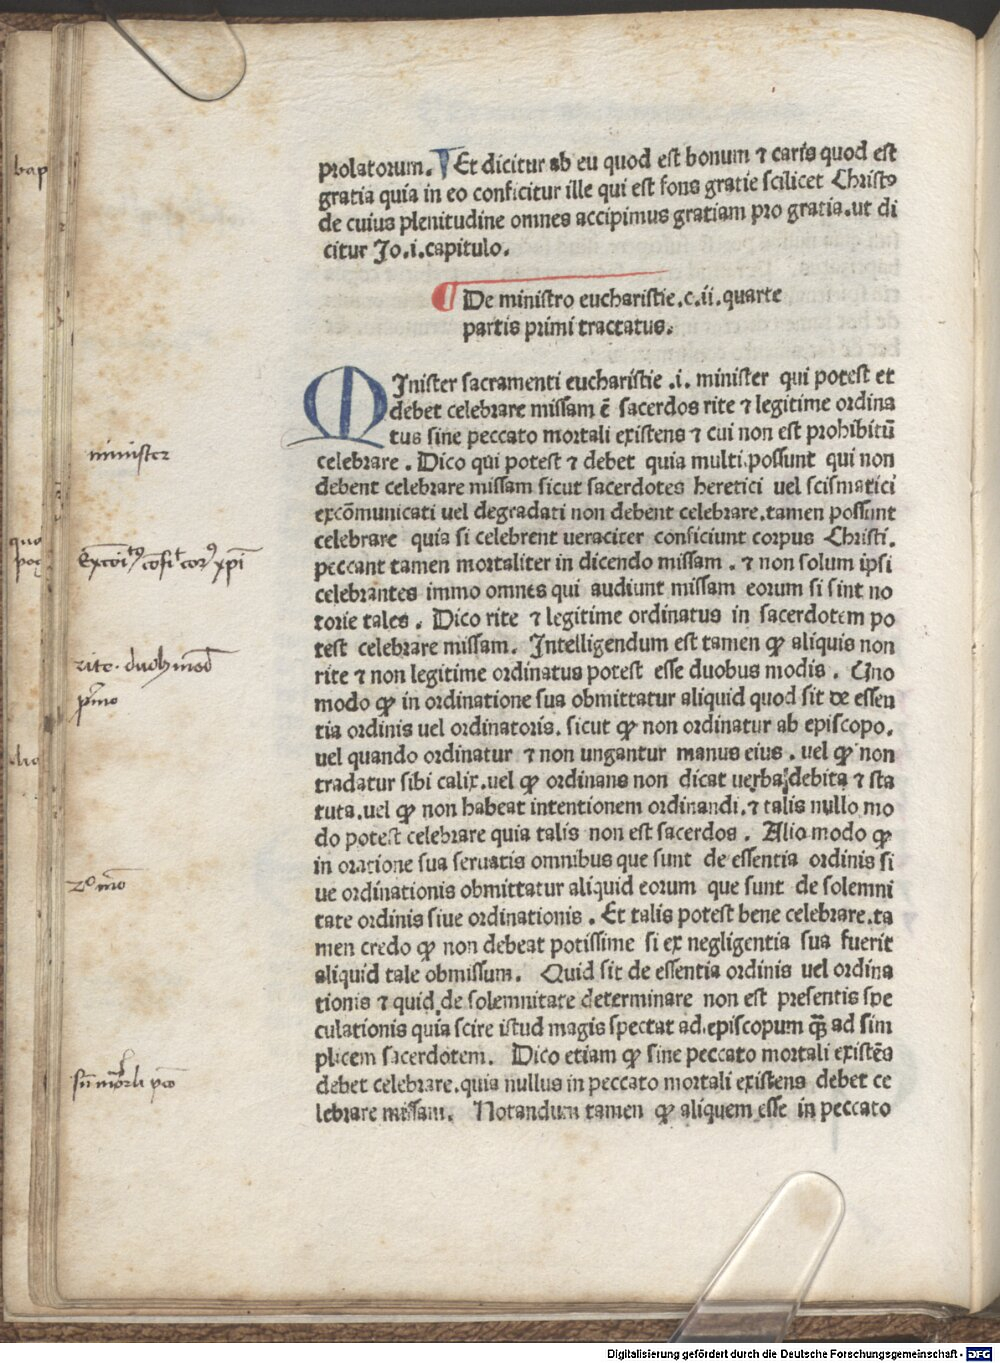 prolatorum. ¶ Et dicitur ab eu quod est bonum ⁊ caris quod est
gratia quia in eo conficitur ille qui est fons gratie scilicet Christꝰ
de cuius plenitudine omnes accipimus gratiam pro gratia.ut di
citur Jo.i.capitulo.
¶ De ministro eucharistie.c.ii.quarte
partis primi tractatus.
MInister sacramenti eucharistie .i. minister qui potest et
debet celebrare missam ē sacerdos rite ⁊ legitime ordina
tus sine peccato mortali existens ⁊ cui non est prohibitū
celebrare . Dico qui potest ⁊ debet quia multi possunt qui non
debent celebrare missam sicut sacerdotes heretici uel scismatici
excōmunicati uel degradati non debent celebrare.tamen possunt
celebrare quia si celebrent ueraciter conficiunt corpus Christi.
peccant tamen mortaliter in dicendo missam . ⁊ non solum ipsi
celebrantes immo omnes qui audiunt missam eorum si sint no
torie tales . Dico rite ⁊ legitime ordinatus in sacerdotem po
test celebrare missam. Intelligendum est tamen ꝙ aliquis non
rite ⁊ non legitime ordinatus potest esse duobus modis . Uno
modo ꝙ in ordinatione sua obmittatur aliquid quod sit de essen
tia ordinis uel ordinatoris. sicut ꝙ non ordinatur ab episcopo.
uel quando ordinatur ⁊ non ungantur manus eius . uel ꝙ non
tradatur sibi calix.uel ꝙ ordinans non dicat uerba debita ⁊ sta
tuta.uel ꝙ non habeat intentionem ordinandi.⁊ talis nullo mo
do potest celebrare quia talis non est sacerdos . Alio modo ꝙ
in oratione sua seruatis omnibus que sunt de essentia ordinis si
ue ordinationis obmittatur aliquid eorum que sunt de solemni
tate ordinis siue ordinationis . Et talis potest bene celebrare.ta
men credo ꝙ non debeat potissime si ex negligentia sua fuerit
aliquid tale obmissum. Quid sit de essentia ordinis uel ordina
tionis ⁊ quid de solemnitate determinare non est presentis spe
culationis quia scire istud magis spectat ad episcopum quā ad sim
plicem sacerdotem. Dico etiam ꝙ sine peccato mortali existēs
debet celebrare.quia nullus in peccato mortali existens debet ce
lebrare missam. Notandum tamen ꝙ aliquem esse in peccato
minister
rite. duobꝫ mod
pͥmo
2º mō
bap
Digitalisierung gefördert durch die Deutsche Forschungsgemeinschaft - DFG